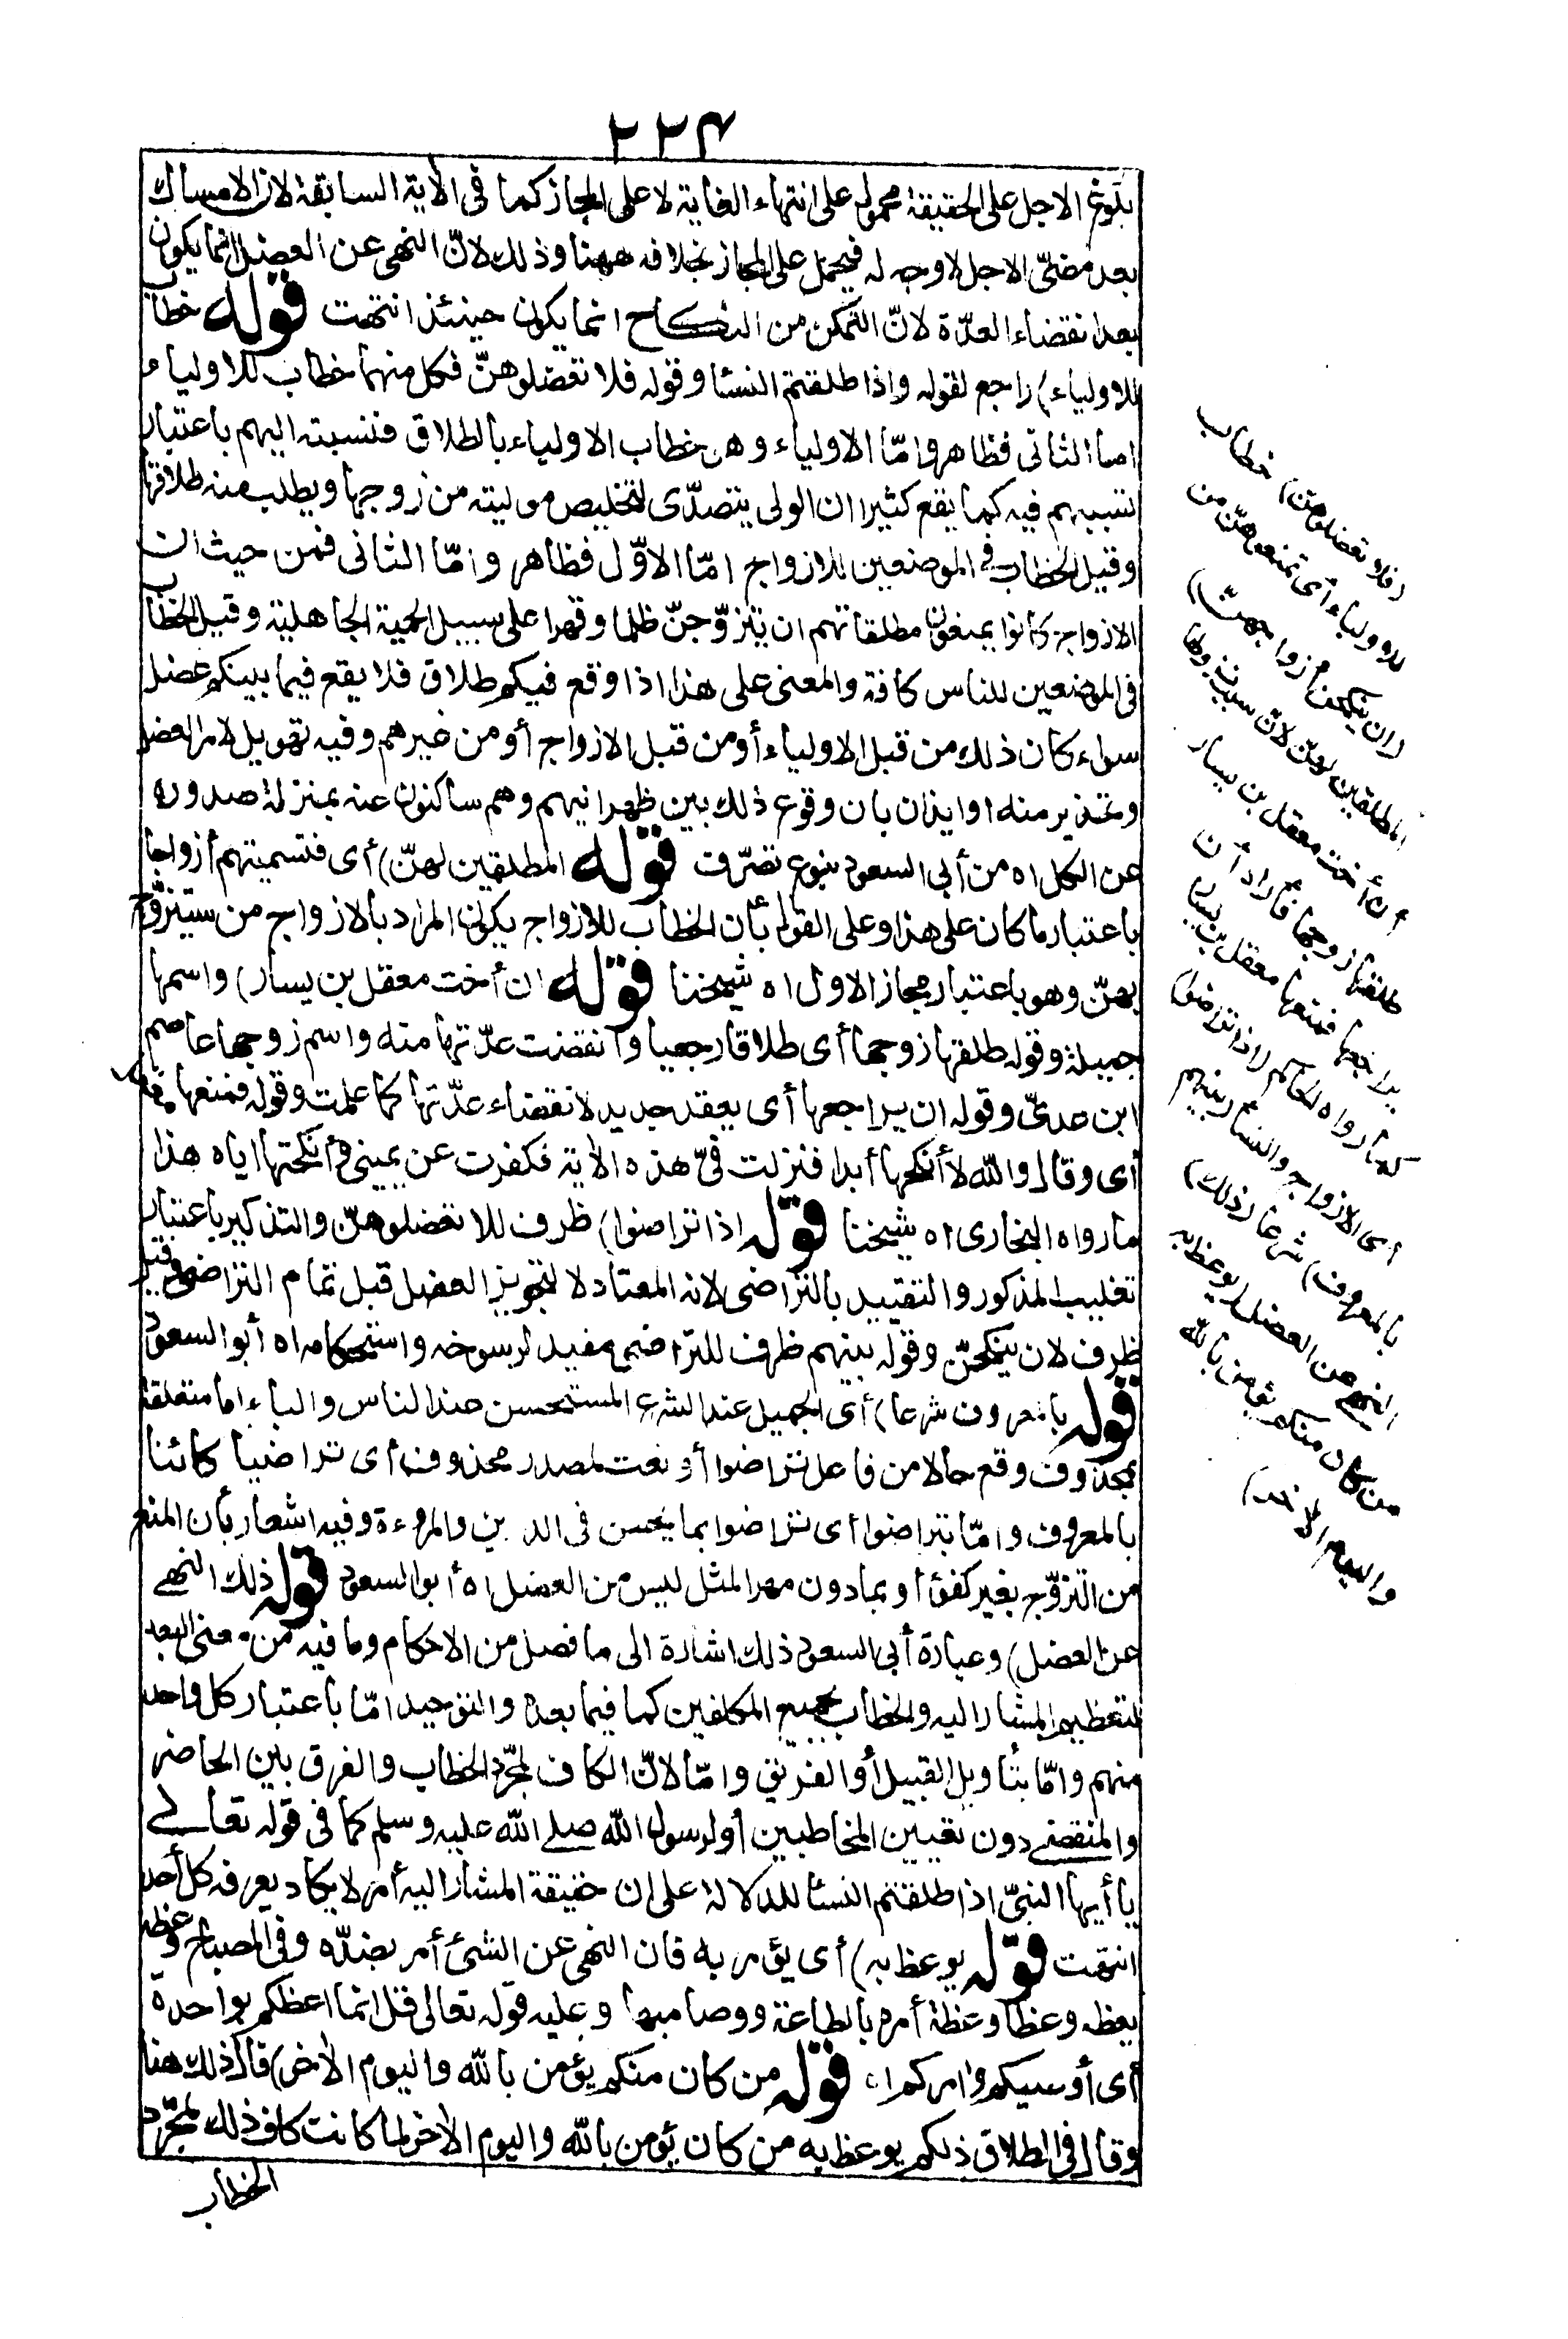 ٢٢٤
بلوغ الاجل على الحقيقة محمول على انتهاء الغاية لا على المجاز كما فى الآية السابقة لان الامساك
بعد مضىّ الاجل لا وجه له فيحمل على المجاز بخلافه ههنا وذلك لانّ النهى عن العضل انما يكون
بعد انقضاء العدّة لانّ التمكن من النكاح انما يكون حينئذ انتهت قوله خطاب
للاولياء) راجع لقوله واذا طلقتم النسا وقوله فلا تعضلوهنّ فكل منهما خطاب للاولياء
اما الثانى فظاهر وامّا الاولياء وهى خطاب الاولياء بالطلاق فنسبته اليهم باعتبار
تسببهم فيه كما يقع كثيرا ان الولى يتصدّى لتخليص موليته من زوجها ويطلب منه طلاقها
وقيل الخطاب فى الموضعين للازواج امّا الاوّل فظاهر وامّا الثانى فمن حيث ان
الازواج كانوا يمنعون مطلقاتهم ان يتزوّجنّ ظلما وقهرا على سبيل الحمية الجاهلية وقيل الخطاب
فى الموضعين للناس كافة والمعنى على هذا اذا وقع فيكم طلاق فلا يقع فيما بينكم عضل
سواء كان ذلك من قبل الاولياء أو من قبل الازواج أو من غيرهم وفيه تهويل لامر العضل
وتحذير منه وايذان بان وقوع ذلك بين ظهرانيهم وهم ساكتون عنه بمنزلة صدوره
عن الكل اه من أبى السعود بنوع تصرّف قوله المطلقين لهنّ) أى فتسميتهم أزواجا
باعتبار ما كان على هذا وعلى القول بأن الخطاب للازواج يكون المراد بالازواج من سيتزوّج
بهنّ وهو باعتبار مجاز الاول اه شيخنا قوله ان أخت معقل بن يسار) واسمها
جميلة وقوله طلقها زوجها أى طلاقا رجعيا وانقضت عدّتها منه واسم زوجها عاصم
ابن عدىّ وقوله ان يراجعها أى بعقد جديد لانقضاء عدّتها كما علمت وقوله فمنعها معقل
أى وقال والله لا أنكحها أبدا فنزلت فىّ هذه الاية فكفرت عن يمينى وأنكحتها اياه هذا
ما رواه البخارى اه شيخنا قوله اذا تراضوا) ظرف للا تعضلوهنّ والتذكير باعتبار
تغليب المذكور والتقييد بالتراضى لانه المعتاد لا لتجويز العضل قبل تمام التراضى وقيل
ظرف لان ينكحنّ وقوله بينهم ظرف للتراضى مفيد لرسوخه واستحكامه اه أبو السعود
قوله بالمعروف شرعا) أى الجميل عند الشرع المستحسن عند الناس والباء اما متعلقة
بمحذوف وقع حالا من فاعل تراضوا أو نعت لمصدر محذوف أى تراضيا كائنا
بالمعروف وامّا بتراضوا أى تراضوا بما يحسن فى الدين والمروءة وفيه اشعار بأن المنع
من التزوّج بغير كفؤ أو بما دون مهر المثل ليس من العضل اه أبو السعود قوله ذلك النهى
عن العضل) وعبارة أبى السعود ذلك اشارة الى ما فصل من الاحكام وما فيه من معنى البعد
لتعظيم المشار اليه والخطاب لجميع المكلفين كما فيما بعده والتوحيد امّا باعتبار كل واحد
منهم وامّا بتأويل القبيل أو الفريق وامّا لانّ الكاف لمجرّد الخطاب والفرق بين الحاضر
والمنقضى دون تعيين المخاطبين أو لرسول الله صلى الله عليه وسلم كما فى قوله تعالى
يا أيها النبىّ اذا طلقتم النسا للدلالة على ان حقيقة المشار اليه أمر لا يكاد يعرفه كل أحد
انتهت قوله يوعظ به) أى يؤمر به فان النهى عن الشئ أمر بضدّه وفى المصباح وعظه
يعظه وعظا وعظة أمره بالطاعة ووصاه بها وعليه قوله تعالى قل انما اعظكم بواحدة
أى أوصيكم وامركم اه قوله من كان منكم يؤمن بالله واليوم الآخر) قال ذلك هنا
وقال فى الطلاق ذلكم يوعظ به من كان يؤمن بالله واليوم الآخر لما كانت كاف ذلك لمجرّد
الخطاب
(فلا تعضلوهن) خطاب
للاولياء أى تمنعوهنّ من
(ان ينكحن أزواجهنّ)
المطلقين لهنّ لانّ سبب نزولها
أن أخت معقل بن يسار
طلقها زوجها فأراد أن
يراجعها فمنعها معقل بن يسار
كما رواه الحاكم (اذا تراضوا)
أى الازواج والنسا (بينهم
بالمعروف) شرعا (ذلك)
النهى عن العضل (يوعظ به
من كان منكم يؤمن بالله
واليوم الآخر)